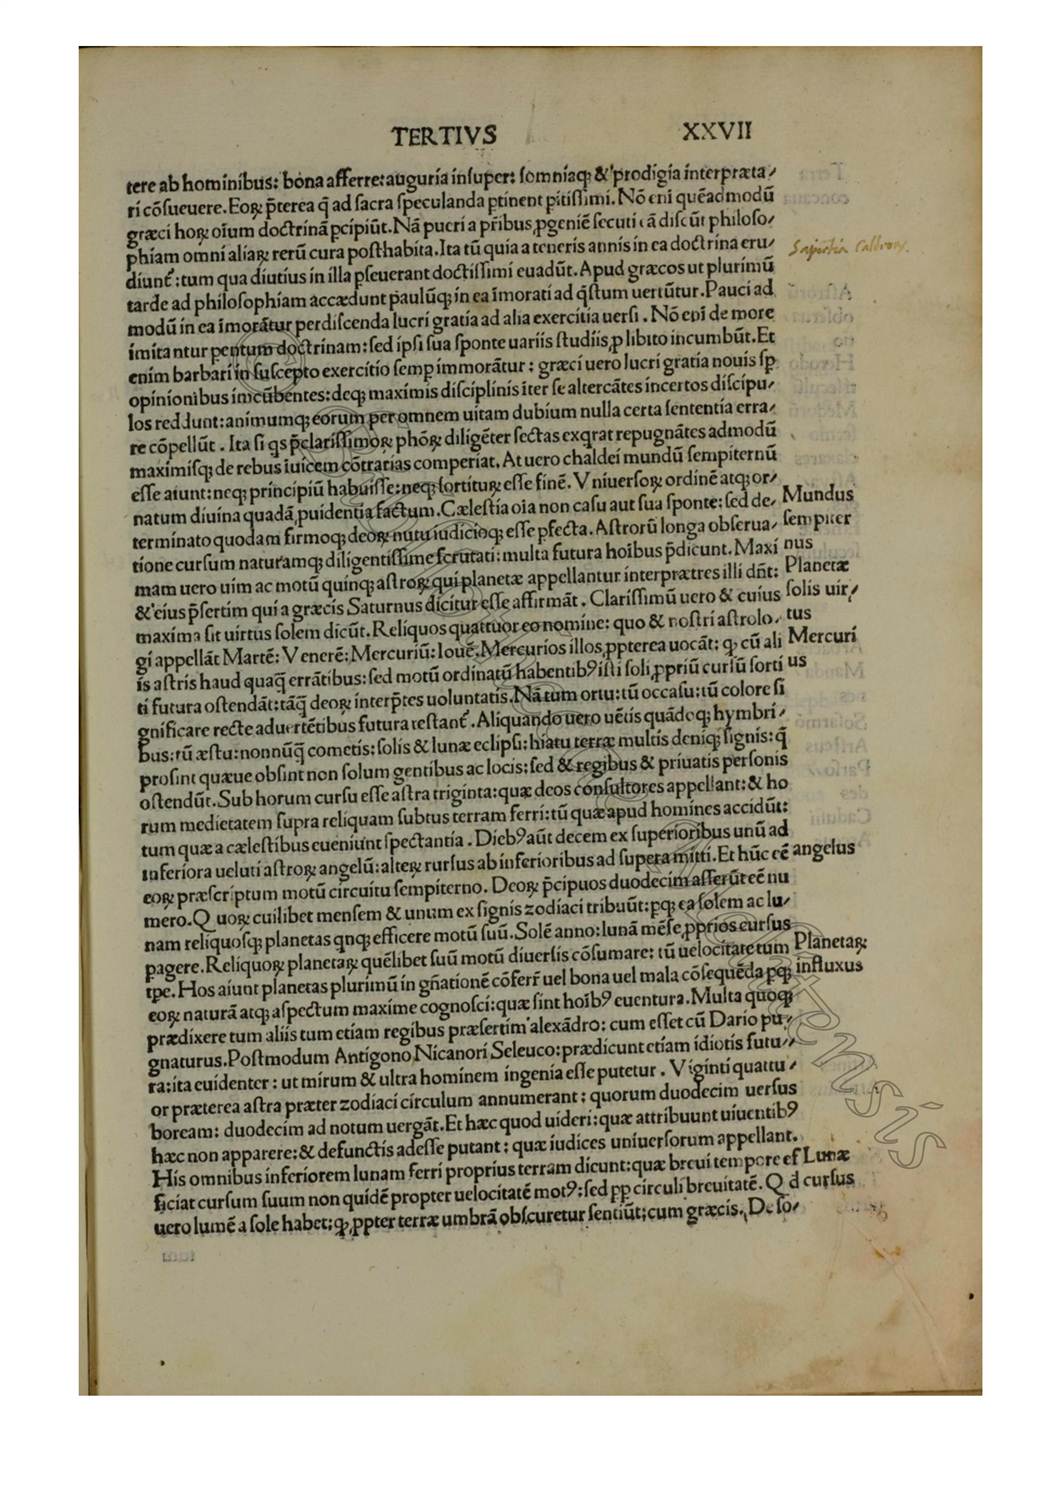 TERTIVS XXVII
tere ab hominibus: bona afferre: auguria insuper: somniaqꝫ & prodigia interpræta/
ri cõsueuere. Eoꝝ p̃terea q̃ ad sacra speculanda ꝑtinent pitissimi. Nõ eni quẽadmodũ
græci hoꝝ oĩum doctrinã ꝑcipiũt. Nã pueri a pr̃ibus ꝓgeniẽ secuti eã discũt philoso/
phiam omni aliaꝝ rerũ cura posthabita. Ita tũ quia a teneris annis in ea doctrina eru/
diunt᷑: tum qua diutius in illa ꝑseuerant doctissimi euadũt. Apud græcos ut plurimũ
tarde ad philosophiam accædunt paulũqꝫ in ea ĩmorati ad q̃stum uertũtur. Pauci ad
modũ in ea ĩmorãtur perdiscenda lucri gratia ad alia exercitia uersi. Nõ eni de more
imitantur pentum doctrinam: sed ipsi sua sponte uariis studiis ꝓ libito incumbũt. Et
enim barbari in suscepto exercitio semꝑ immorãtur: græci uero lucri gratia nouis sꝑ
opinionibus incũbentes: deqꝫ maximis disciplinis ĩter se altercãtes incertos discipu/
los reddunt: animumqꝫ eorum per omnem uitam dubium nulla certa sententia erra/
re cõpellũt. Ita si qs p̃clarissimoꝝ phõꝝ diligẽter sectas exqrat repugnãtes admodũ
maximisqꝫ de rebus iuicem cõtrarias comperiat. At uero chaldei mundũ sempiternũ
esse aiunt: neqꝫ principiũ habuisse: neqꝫ sortituꝝ esse finẽ. Vniuersoꝝ ordinẽ atqꝫ or/
natum diuina quadã ꝓuidentia factum. Cælestia oĩa non casu aut sua sponte: sed de/
terminato quodam firmoqꝫ deoꝝ nutu iudicioqꝫ esse ꝑfecta. Astrorũ longa obserua/
tione cursum naturamqꝫ diligentissime scrutati: multa futura hoĩbus p̃dicunt. Maxi
mam uero uim ac motũ quinqꝫ astroꝝ qui planetæ appellantur interprætres illi dñt:
& eius p̃sertim qui a græcis Saturnus dicitur esse affirmãt. Clarissimũ uero & cuius
maxima sit uirtus solem dicũt. Reliquos quattuor eo nomine: quo & nostri astrolo/
gi appellãt Martẽ: Venerẽ: Mercuriũ: Iouẽ. Mercurios illos ꝓpterea uocãt: ꝙ cũ ali
is astris haud quaq̃ errãtibus: sed motũ ordinatũ habentibꝰ isti soli ꝓpriũ cursũ sorti
ti futura ostendãt: tãq̃ deoꝝ interp̃tes uoluntatis. Nã tum ortu: tũ occasu: tũ colore si
gnificare recte aduertẽtibus futura testant᷑. Aliquando uero uẽtis quãdoqꝫ hymbri/
bus: tũ æstu: nonnũq̃ cometis: solis & lunæ eclipsi: hiatu terræ multis deniqꝫ signis: q̃
prosint quæue obsint non solum gentibus ac locis: sed & regibus & priuatis personis
ostendũt. Sub horum cursu esse astra triginta: quæ deos consultores appellant: & ho
rum medietatem supra reliquam subtus terram ferri: tũ quæ apud homines accidũt:
tum quæ a cælestibus eueniunt spectantia. Diebꝰ aũt decem ex superioribus unũ ad
inferiora ueluti astroꝝ angelũ: alteꝝ rursus ab inferioribus ad supera mitti. Et hũc eẽ
eoꝝ præscriptum motũ circuitu sempiterno. Deoꝝ p̃cipuos duodecim asserũt eẽ nu
mero. Quoꝝ cuilibet mensem & unum ex signis zodiaci tribuũt: ꝑqꝫ ea solem ac lu/
nam reliquosqꝫ planetas qnqꝫ efficere motũ suũ. Solẽ anno: lunã mẽse ꝓprios cursus
pagere. Reliquoꝝ planetaꝝ quẽlibet suũ motũ diuersis cõsumare: tũ uelocitate tum
tꝑe. Hos aiunt planetas plurimũ in gñationẽ cõferr̃ uel bona uel mala cõsequẽda ꝑqꝫ
eoꝝ naturã atqꝫ aspectum maxime cognosci: quæ sint hoĩbꝰ euentura. Multa quoqꝫ
prædixere tum aliis tum etiam regibus præsertim alexãdro: cum esset cũ Dario pu/
gnaturus. Postmodum Antigono Nicanori Seleuco: prædicunt etiam idiotis futu/
ra: ita euidenter: ut mirum & ultra hominem ingenia esse putetur. Viginti quattu/
or præterea astra præter zodiaci circulum annumerant: quorum duodecim uersus
boream: duodecim ad notum uergãt. Et hæc quod uideri: quæ attribuunt uiuentibꝰ
hæc non apparere: & defunctis adesse putant: quæ iudices uniuersorum appellant.
His omnibus inferiorem lunam ferri proprius terram dicunt: quæ breui tempore ef
ficiat cursum suum non quidẽ propter uelocitatẽ motꝰ: sed ꝓp circuli breuitatẽ. Q d
uero lumẽ a sole habet: ꝙ ꝓpter terræ umbrã obscuretur sentiũt: cum græcis. De so/
Mundus
sempiter
nus
Planetæ
solis uir/
tus
Mercuri
us
angelus
Planetaꝝ
influxus
Lunæ
cursus